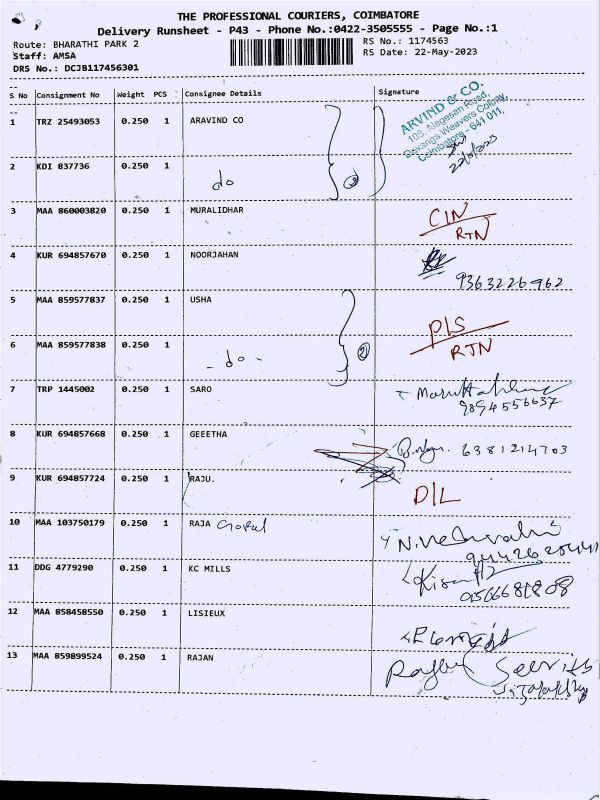 THE PROFESSIONAL COURIERS, COIMBATORE
Delivery Runsheet - P43 - Phone No.:0422-3505555 - Page No.:1
Route: BHARATHI PARK 2
RS No.: 1174563
Staff: AMSA
RS Date: 22-May-2023
DRS No.: DCJB117456301
S No Consignment No Weight PCS Consignee Details Signature
1 TRZ 25493053 0.250 1 ARAVIND CO
ARVIND & CO.
108, Alagesan Road,
Devanga Weavers Colony,
Coimbatore - 641 011.
22/5/2023
2 KDI 837736 0.250 1 do
3 MAA 860003820 0.250 1 MURALIDHAR CIN
RTN
4 KUR 694857670 0.250 1 NOORJAHAN
9363226962
5 MAA 859577837 0.250 1 USHA
6 MAA 859577838 0.250 1 - do - (2) D/S
RTN
7 TRP 1445002 0.250 1 SARO
9894556637
8 KUR 694857668 0.250 1 GEEETHA 6381214703
9 KUR 694857724 0.250 1 RAJU. D/L
10 MAA 103750179 0.250 1 RAJA Gopal
11 DDG 4779290 0.250 1 KC MILLS
12 MAA 858458550 0.250 1 LISIEUX
13 MAA 859899524 0.250 1 RAJAN